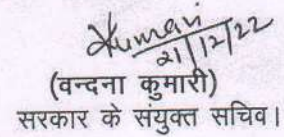 Kumari
21/12/22
(वन्दना कुमारी)
सरकार के संयुक्त सचिव।